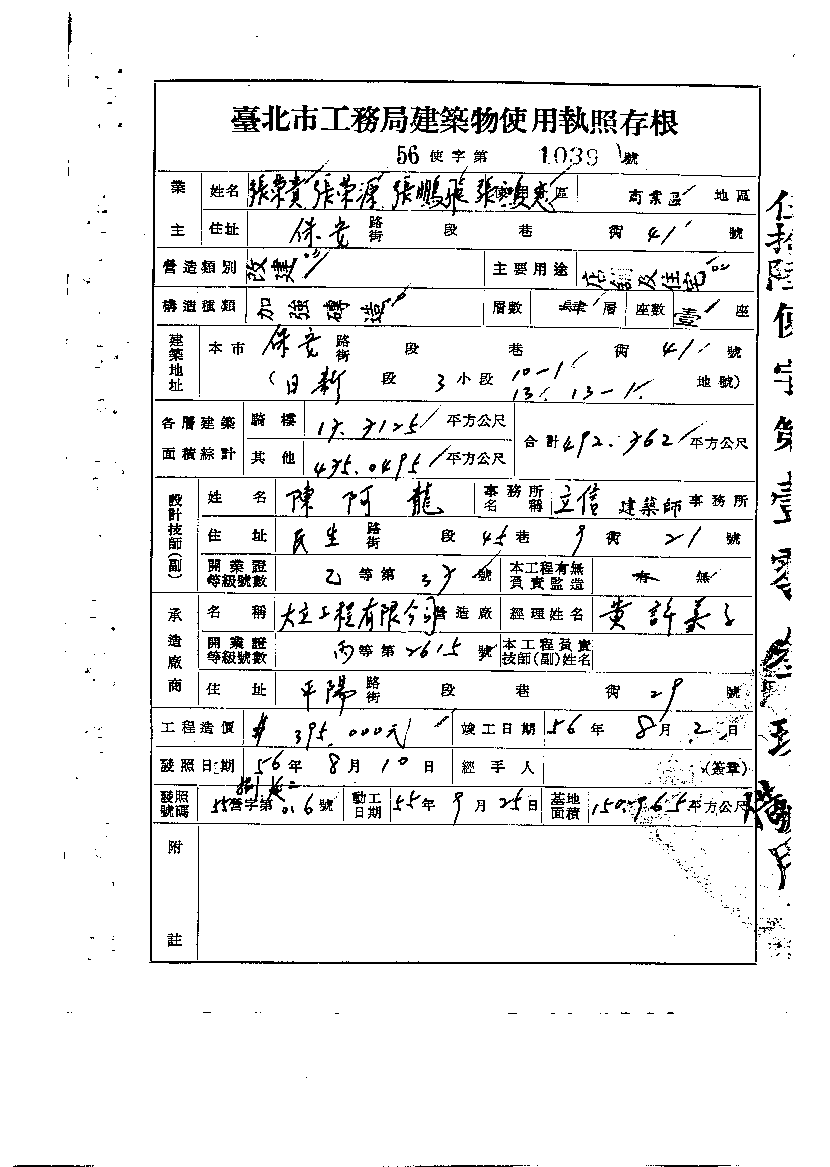 臺北市工務局建築物使用執照存根
56 使字第 1039 號
業主 姓名 張榮貴 張榮源 張鵬飛 區 商業區 地區
住址 保安 路街 段 巷 衖 41 號
營造類別 改建 主要用途 店舖及住宅
構造種類 加強磚造 層數 層 座數 壹 座
建築地址 本市 保安 路街 段 巷 衖 41 號
(日新 段 3 小段 10-1 13. 13-1. 地號)
各層建築面積綜計 騎樓 平方公尺 合計 492.362 平方公尺
其他 435.0495 平方公尺
設計技師(副) 姓名 陳阿龍 事務所名稱 立信 建築師 事務所
住址 民生 路街 段 45 巷 9 衖 21 號
開業證等級號數 乙 等第 號 本工程有無負責監造 有 無
承造廠商 名稱 大立工程有限公司 營造廠 經理姓名 黄許美子
開業證等級號數 丙 等第 2615 號 本工程負責技師(副)姓名
住址 平陽 路街 段 巷 衖 29 號
工程造價 # 395.000元 竣工日期 56 年 8 月 2 日
發照日期 56 年 8 月 10 日 經手人 (簽章)
發照號碼 55 營字第 號 動工日期 55 年 9 月 25 日 基地面積 150.965 平方公尺
附註
伍拾陸使字第壹零